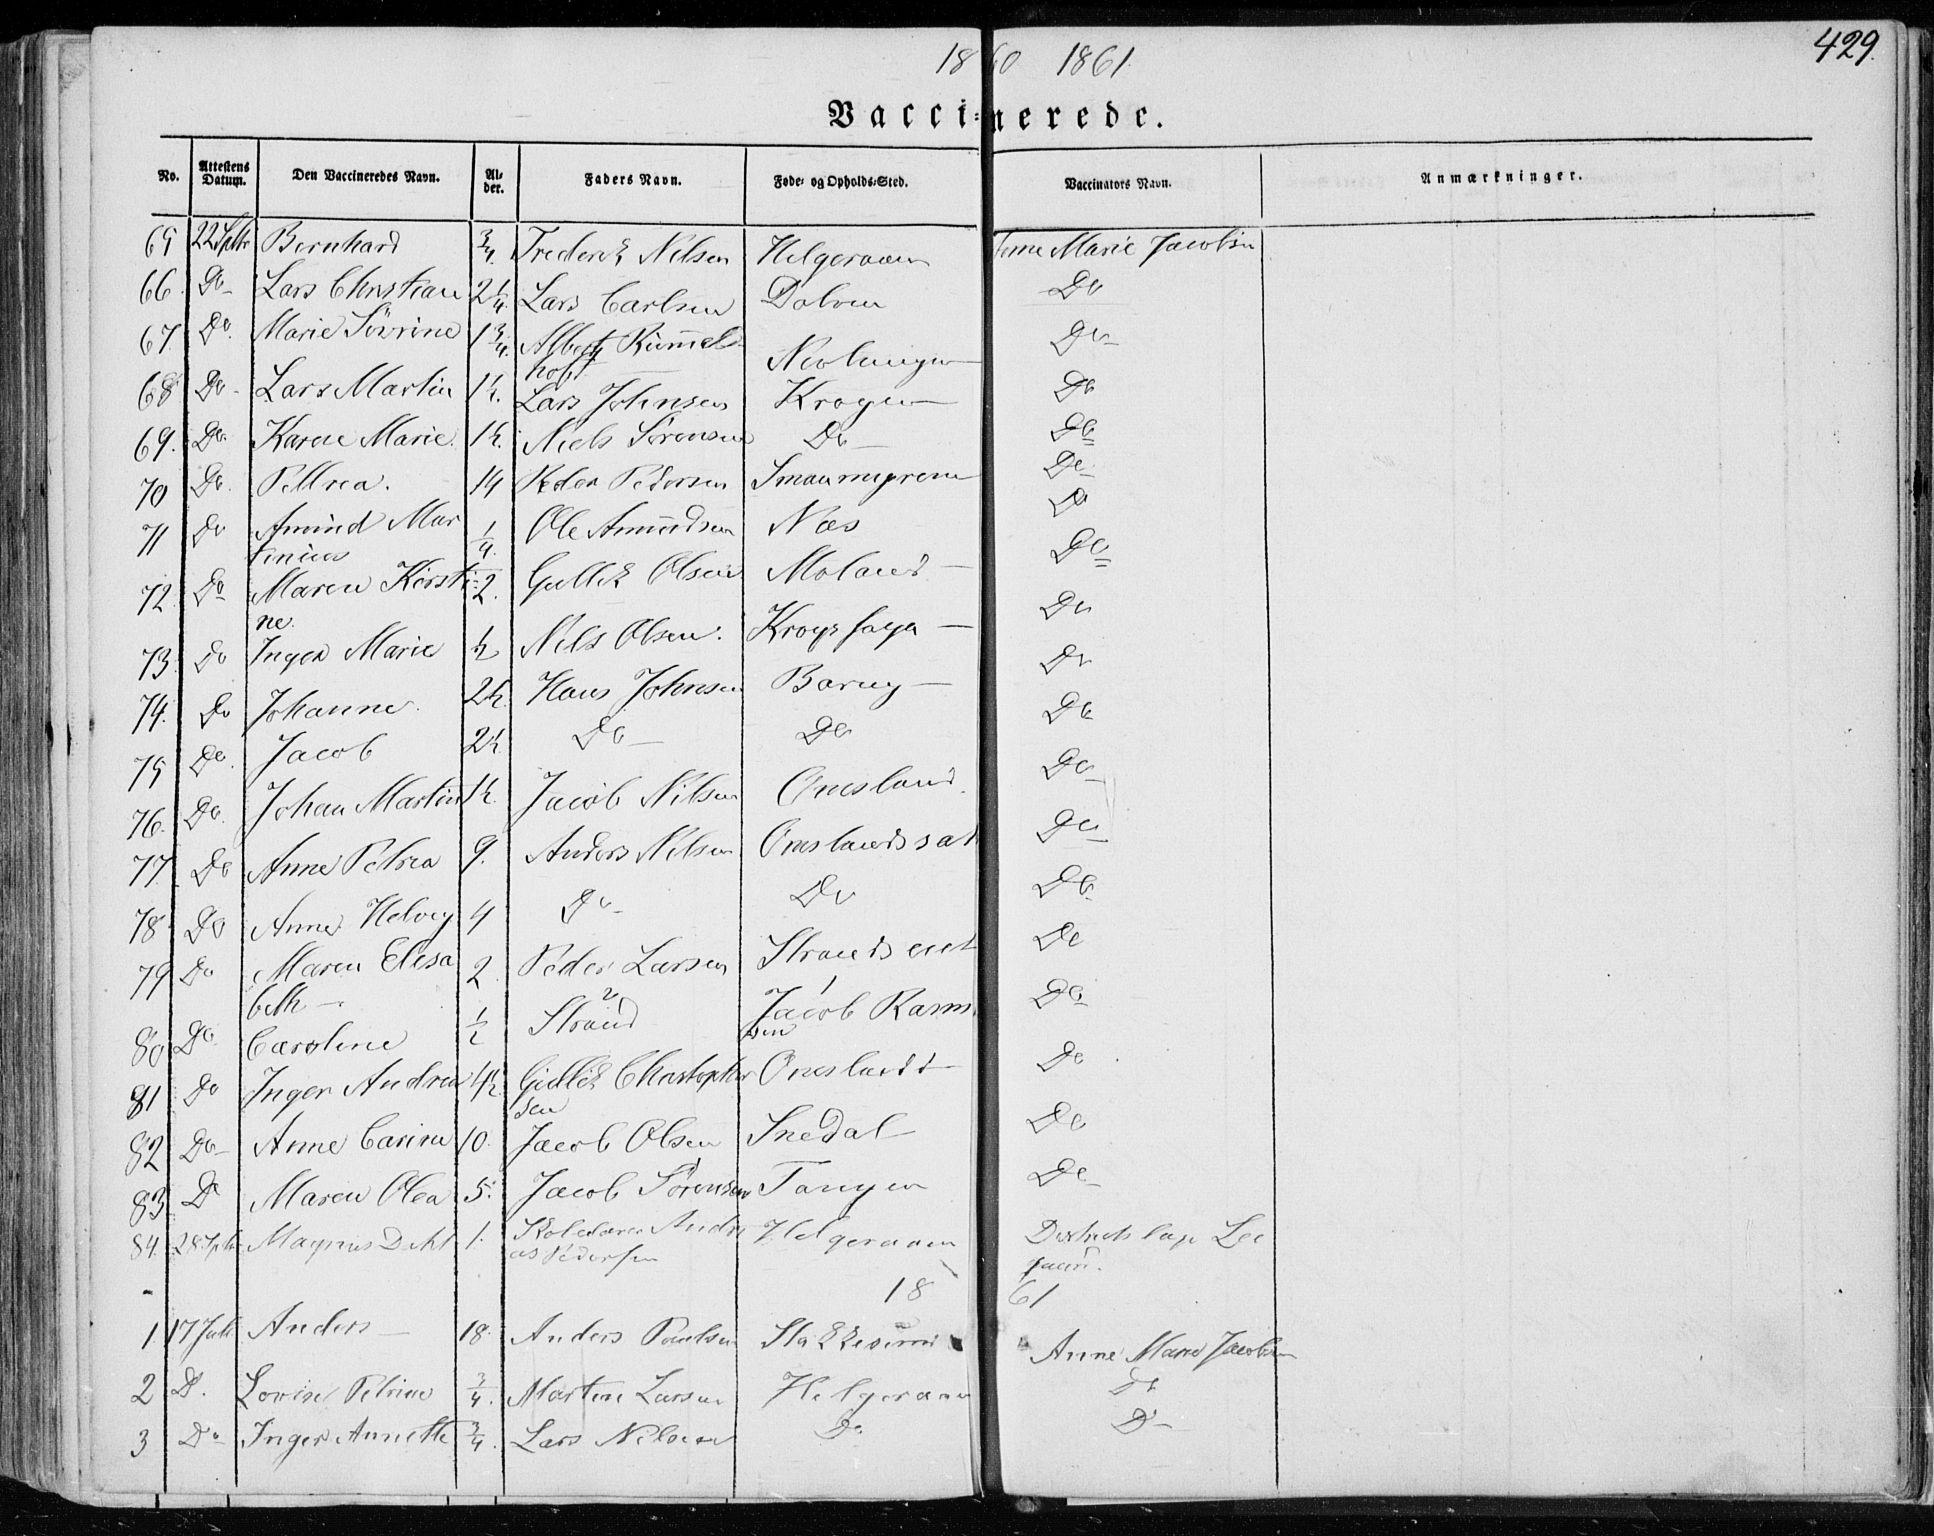 1860 1861
429.
Vaccinerede.
No. Attestens Datum. Den Vaccineredes Navn. Alder. Faders Navn. Føde- og Opholds-Sted. Vaccinators Navn. Anmærkninger.
65 22 Septbr Bernhard 3/4. Frederik Nilsen Helgeraaen Anne Marie Jacobsen
66. Do Lars Christian 2 1/4 Lars Carlsen Dolven Do
67. Do. Marie Sövrine 1 3/4. Albert Kummel- Nevlungen Do
hoft
68 Do Lars Martin 1 1/2. Lars Johnsen Krogen Do
69. Do. Karen Marie. 1 1/2. Niels Sörensen Do Do
70 Do. Pettrea. 14 Peder Pedersen Smaamyrene Do
71 Do Amund Mar 1/4. Ole Amundsen Næs Do
tinius
72. Do Maren Kirsti- 2. Gullik Olsen Moland Do
ne.
73. Do Inger Marie 1/2 Nils Olsen. Krogsfoga Do
74. Do Johanne. 2 1/2. Hans Johnsen Barny Do
75 Do. Jacob 2 1/2 Do Do Do
76. Do. Johan Martin 1 1/2. Jacob Nilsen Omsland. Do
77. Do Anne Petrea 9. Anders Nilsen Omslandssat Do
78 Do Anne Helvig 4 Do Do Do
79 Do Maren Elisa 2 Peder Larsen Strands eiet Do
beth
80 Do Caroline 1/2 2 Strand 1 Jacob Rasmus Do
sen
81 Do Inger Andrea 4 1/2. Gullik Christopher Omslandt Do
sen
82 Do Anne Carine 10. Jacob Olsen Snedal Do
83 Do Maren Olea 5. Jacob Sörensen Tangen Do
84. 28 Septbr Magnus Dekt 1. Skolelærer Andre Helgeraaen Districtslæge Lee
as Pedersen
1861
1. 17 Juli Anders 18. Anders Paulsen Anne Marie Jacobsen
2 Do. Lovise Petrine 3/4. Martin Larsen Helgeraaen Do
3 Do Inger Annette 3/4. Lars Nilsen Do Do